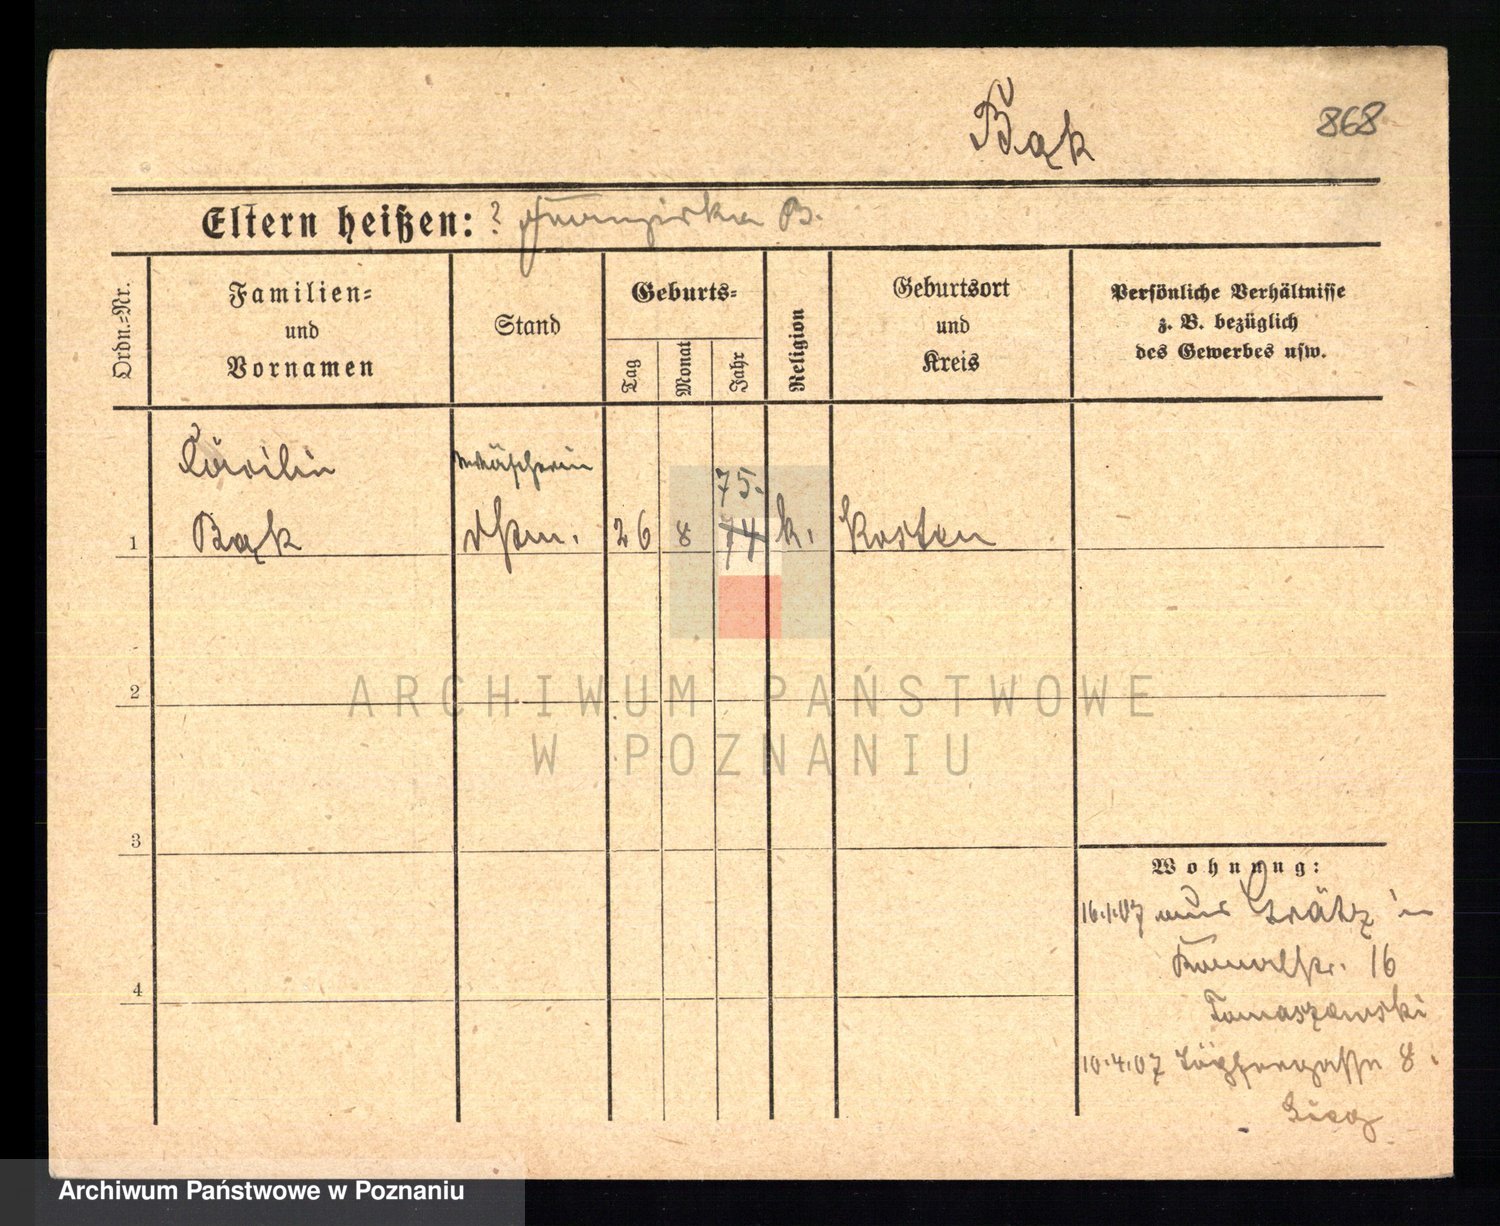 Bąk
868
Eltern heißen: ? Franziska B.
Ordn.=Nr.
Familien=
und
Vornamen
Stand
Geburts=
Tag
Monat
Jahr
Religion
Geburtsort
und
Kreis
Persönliche Verhältnisse
z. B. bezüglich
des Gewerbes usw.
Cäcilie
Wäscherin
75.
1 Bąk 26 8 74 k. Kosten
2
3
4
Wohnung:
16.1.07 aus Grätz in
16
Tomaszewski
10.4.07 Töpfergasse 8.
ARCHIWUM PAŃSTWOWE
W POZNANIU
Archiwum Państwowe w Poznaniu